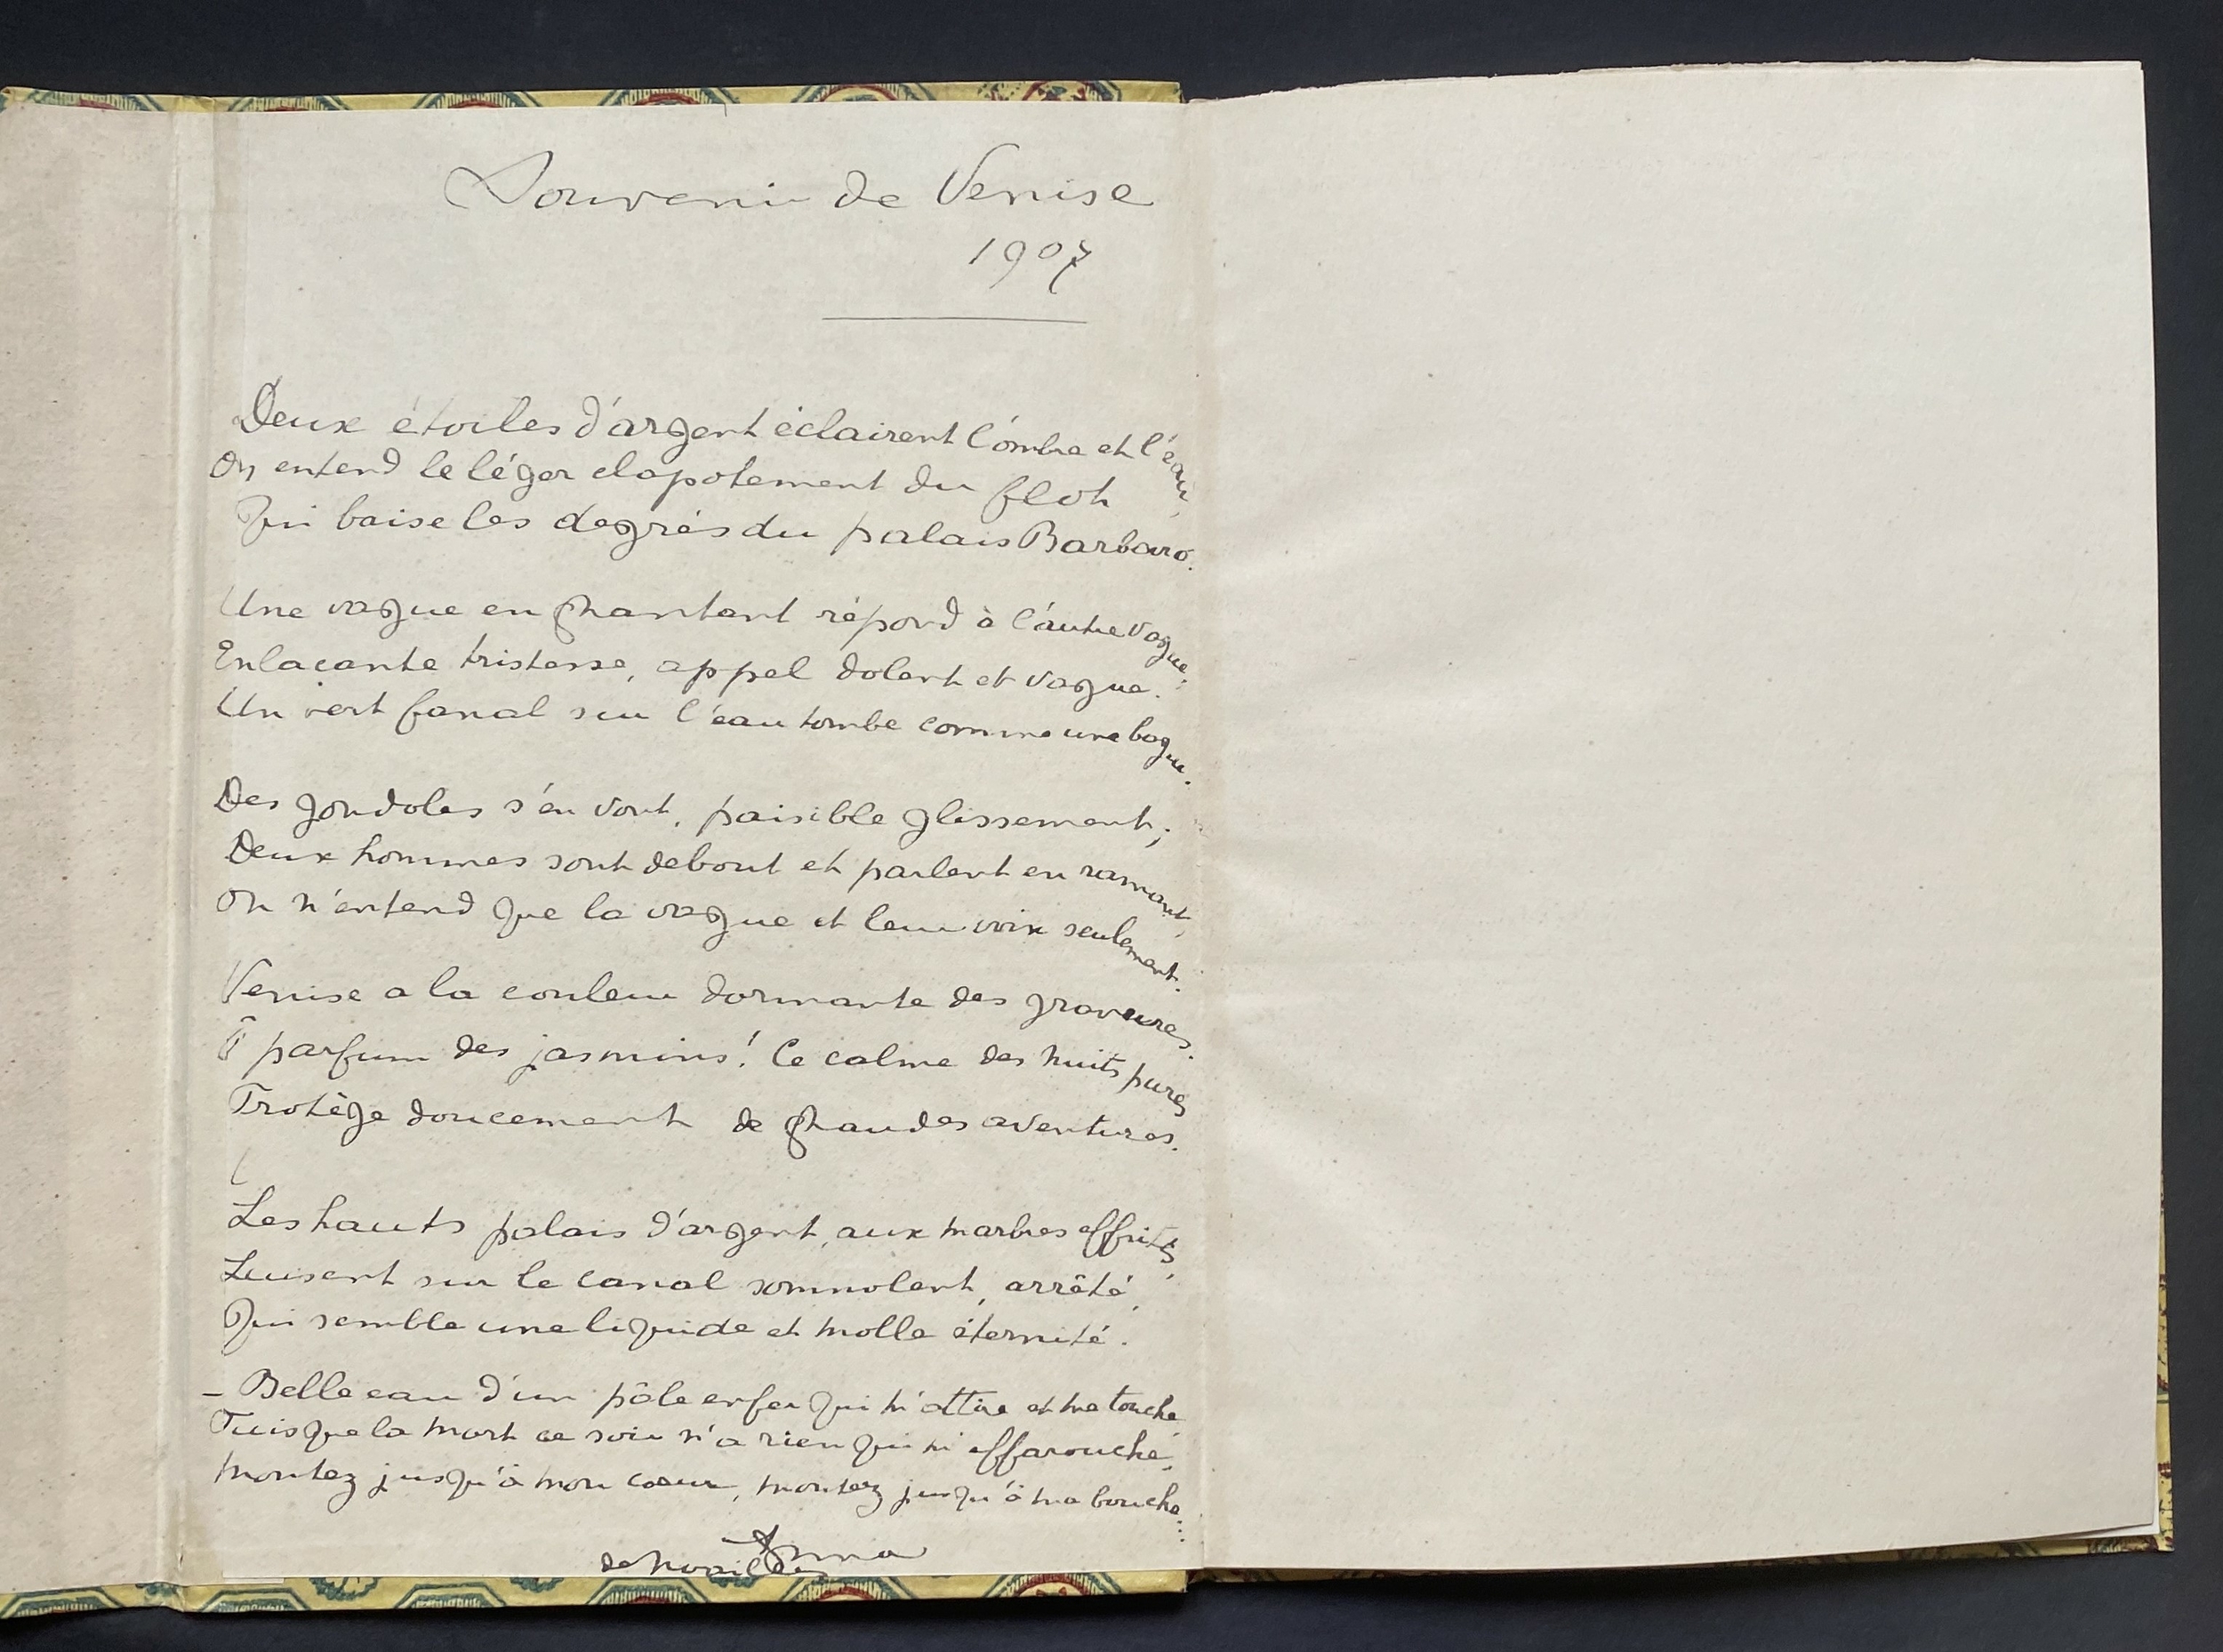 Souvenir de Venise
1907
Deux étoiles d'argent éclairent l'ombre et l'eau,
On entend le léger clapotement du flot
Qui baise les degrés du palais Barbaro.
Une vague en chantant répond à l'autre vague:
Enlaçante tristesse, appel dolent et vague.
Un vert fanal sur l'eau tombe comme une bague.
Des gondoles s'en vont, paisible glissement;
Deux hommes sont debout et parlent en ramant,
On n'entend que la vague et leur voix seulement.
Venise a la couleur dormante des gravures.
Ô parfum des jasmins! Le calme des nuits pures
Protège doucement de chaudes aventures.
Les hauts palais d'argent, aux marbres effrités,
Luisent sur le canal somnolent, arrêté,
Qui semble une liquide et molle éternité.
– Belle eau d'un pâle enfer qui m'attire et me touche,
Puisque la mort ce soir n'a rien qui m'effarouche,
Montez jusqu'à mon cœur, montez jusqu'à ma bouche...
Anna
de Noailles